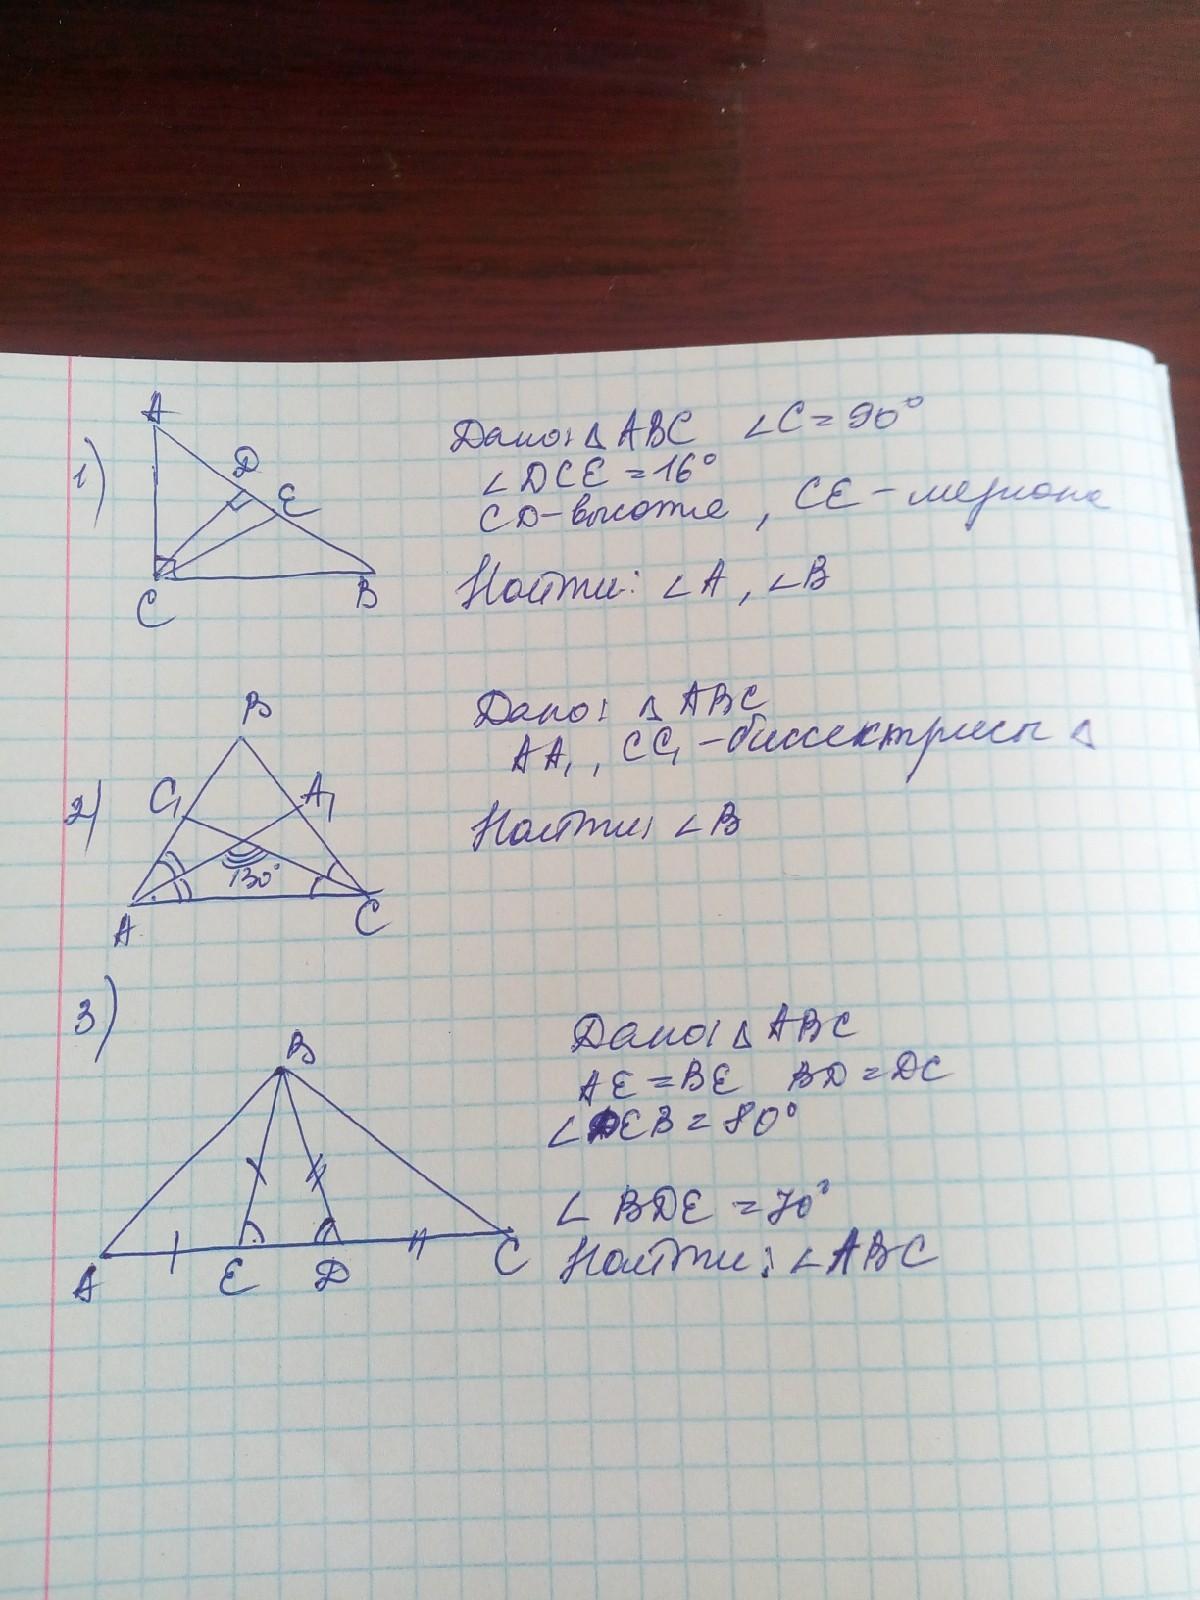 1)
A
D
E
C
B
Дано: Δ ABC ∠C = 90°
∠DCE = 16°
CD - высота, CE - медиана
Найти: ∠A, ∠B
2)
B
C₁
A₁
130°
A
C
Дано: Δ ABC
AA₁, CC₁ - биссектрисы Δ
Найти: ∠B
3)
B
A
E
D
C
Дано: Δ ABC
AE = BE BD = DC
∠DEB = 80°
∠ BDE = 70°
Найти: ∠ABC